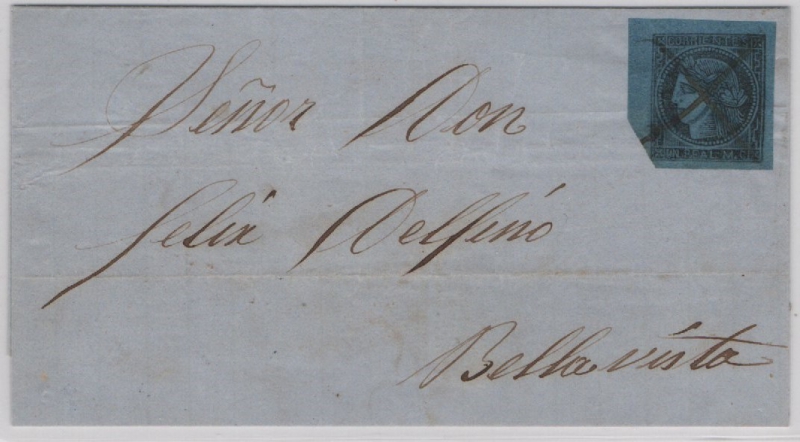 CORRIENTES
UN REAL M.C.
Señor Don
Felix Delfino
Bellavista